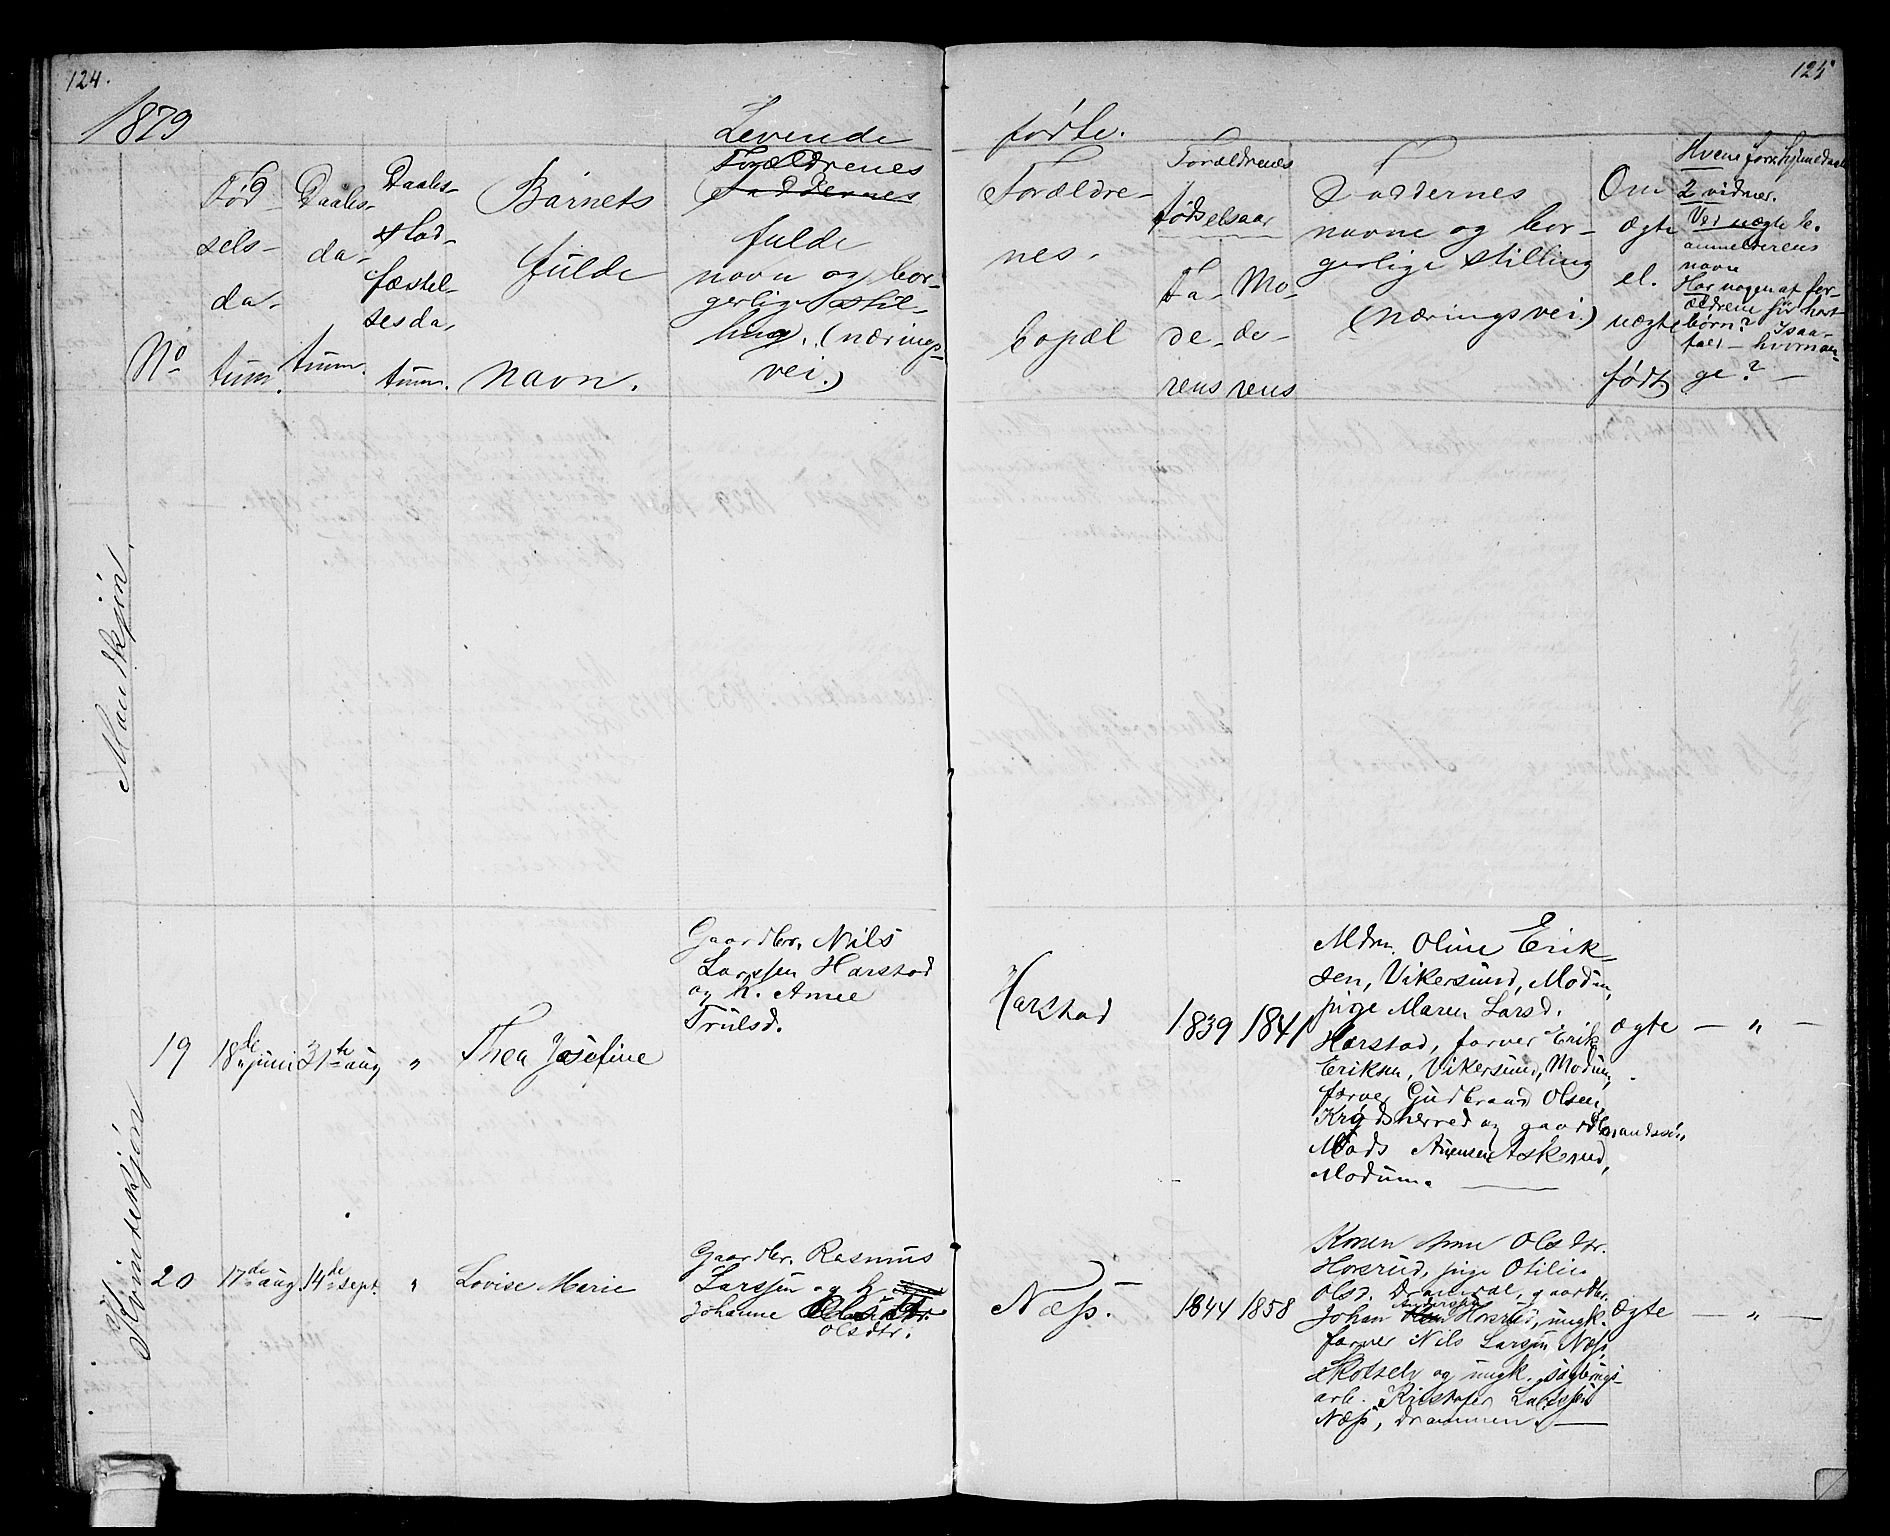 124.
125
1879
Levende
fødte.
No
Fød
sels-
da-
tum.
Daabs-
da-
tum.
Daabs-
stad-
fæstel-
sesda-
tum.
Barnets
fulde
navn.
Forældrenes
Faddernes
fulde
navn og bor-
gerlige stil-
ling. (nærings-
vei.)
Forældre-
nes.
bopæl
Forældrenes
fødselsaar
Fa-
de-
rens
Mo-
de-
rens
Faddernes
navne og bor-
gerlige stilling
(næringsvei.)
Om
ægte
el.
uægte
født.
2 vidner.
Ved uægte be.
anmelderens
navn
Har nogen af for-
ældrene før havt
børn? Isaa-
fald - hvorman-
ge? —
Mandkjøn.
Kvindekjøn
19
18de juni
31te aug
"
Thea Josefine
Gaardbr. Nils
Larssen Harstad
og h. Anne
Trulsd.
Harstad
1839
1841
Mdm. Oline Erik-
sen, Vikersund, Modum,
pige Maren Larsd.
Harstad, farver Erik
Eriksen, Vikersund, Modum,
farver Gudbrand Olsen
Krødsherred og gaardbrandssøn
Mads Askerud,
Modum.
ægte
— " —
20
17de aug
14de sept.
"
Lovise Marie
Gaardbr. Rasmus
Larssen og h.
Johanne
Olsdtr.
Næss.
1844
1858
Konen Anne Olsdtr.
Horsrud, pige Otilie
Olsd. Drammen, gaardbr.
Johan Anderssen Horsrud, ungk.
farver Nils Larssen Næss,
Skotselv og ungk.
arb. Kristofer Larssen
Næss, Drammen. —
ægte
— " —